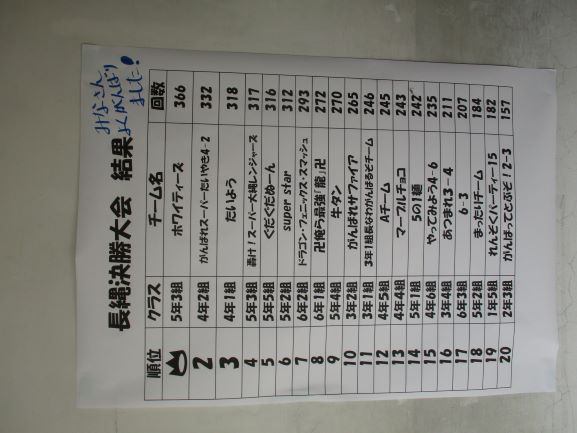 長縄決勝大会 結果
みなさん
よくがんばり
ました!
順位 クラス チーム名 回数
5年3組 ホワイティーズ 366
2 4年2組 がんばれスーパーたいやき4-2 332
3 4年1組 たいよう 318
4 5年3組 轟け!スーパー大縄レンジャーズ 317
5 5年5組 ぐだぐだぬーん 316
6 5年2組 super star 312
7 6年2組 ドラゴン・フェニックス・スマッシュ 293
8 6年1組 卍俺ら最強「龍」卍 272
9 5年4組 牛タン 270
10 3年2組 がんばれサファイア 265
11 3年1組 3年1組長なわがんばるぞチーム 246
12 4年5組 Aチーム 245
13 4年4組 マーブルチョコ 243
14 5年1組 5の1麺 242
15 4年6組 やってみよう4-6 235
16 3年4組 あつまれ3-4 211
17 6年3組 6-3 207
18 5年2組 まったりチーム 184
19 1年5組 れんぞくパーティー15 182
20 2年3組 がんばってとぶぞ!2-3 157